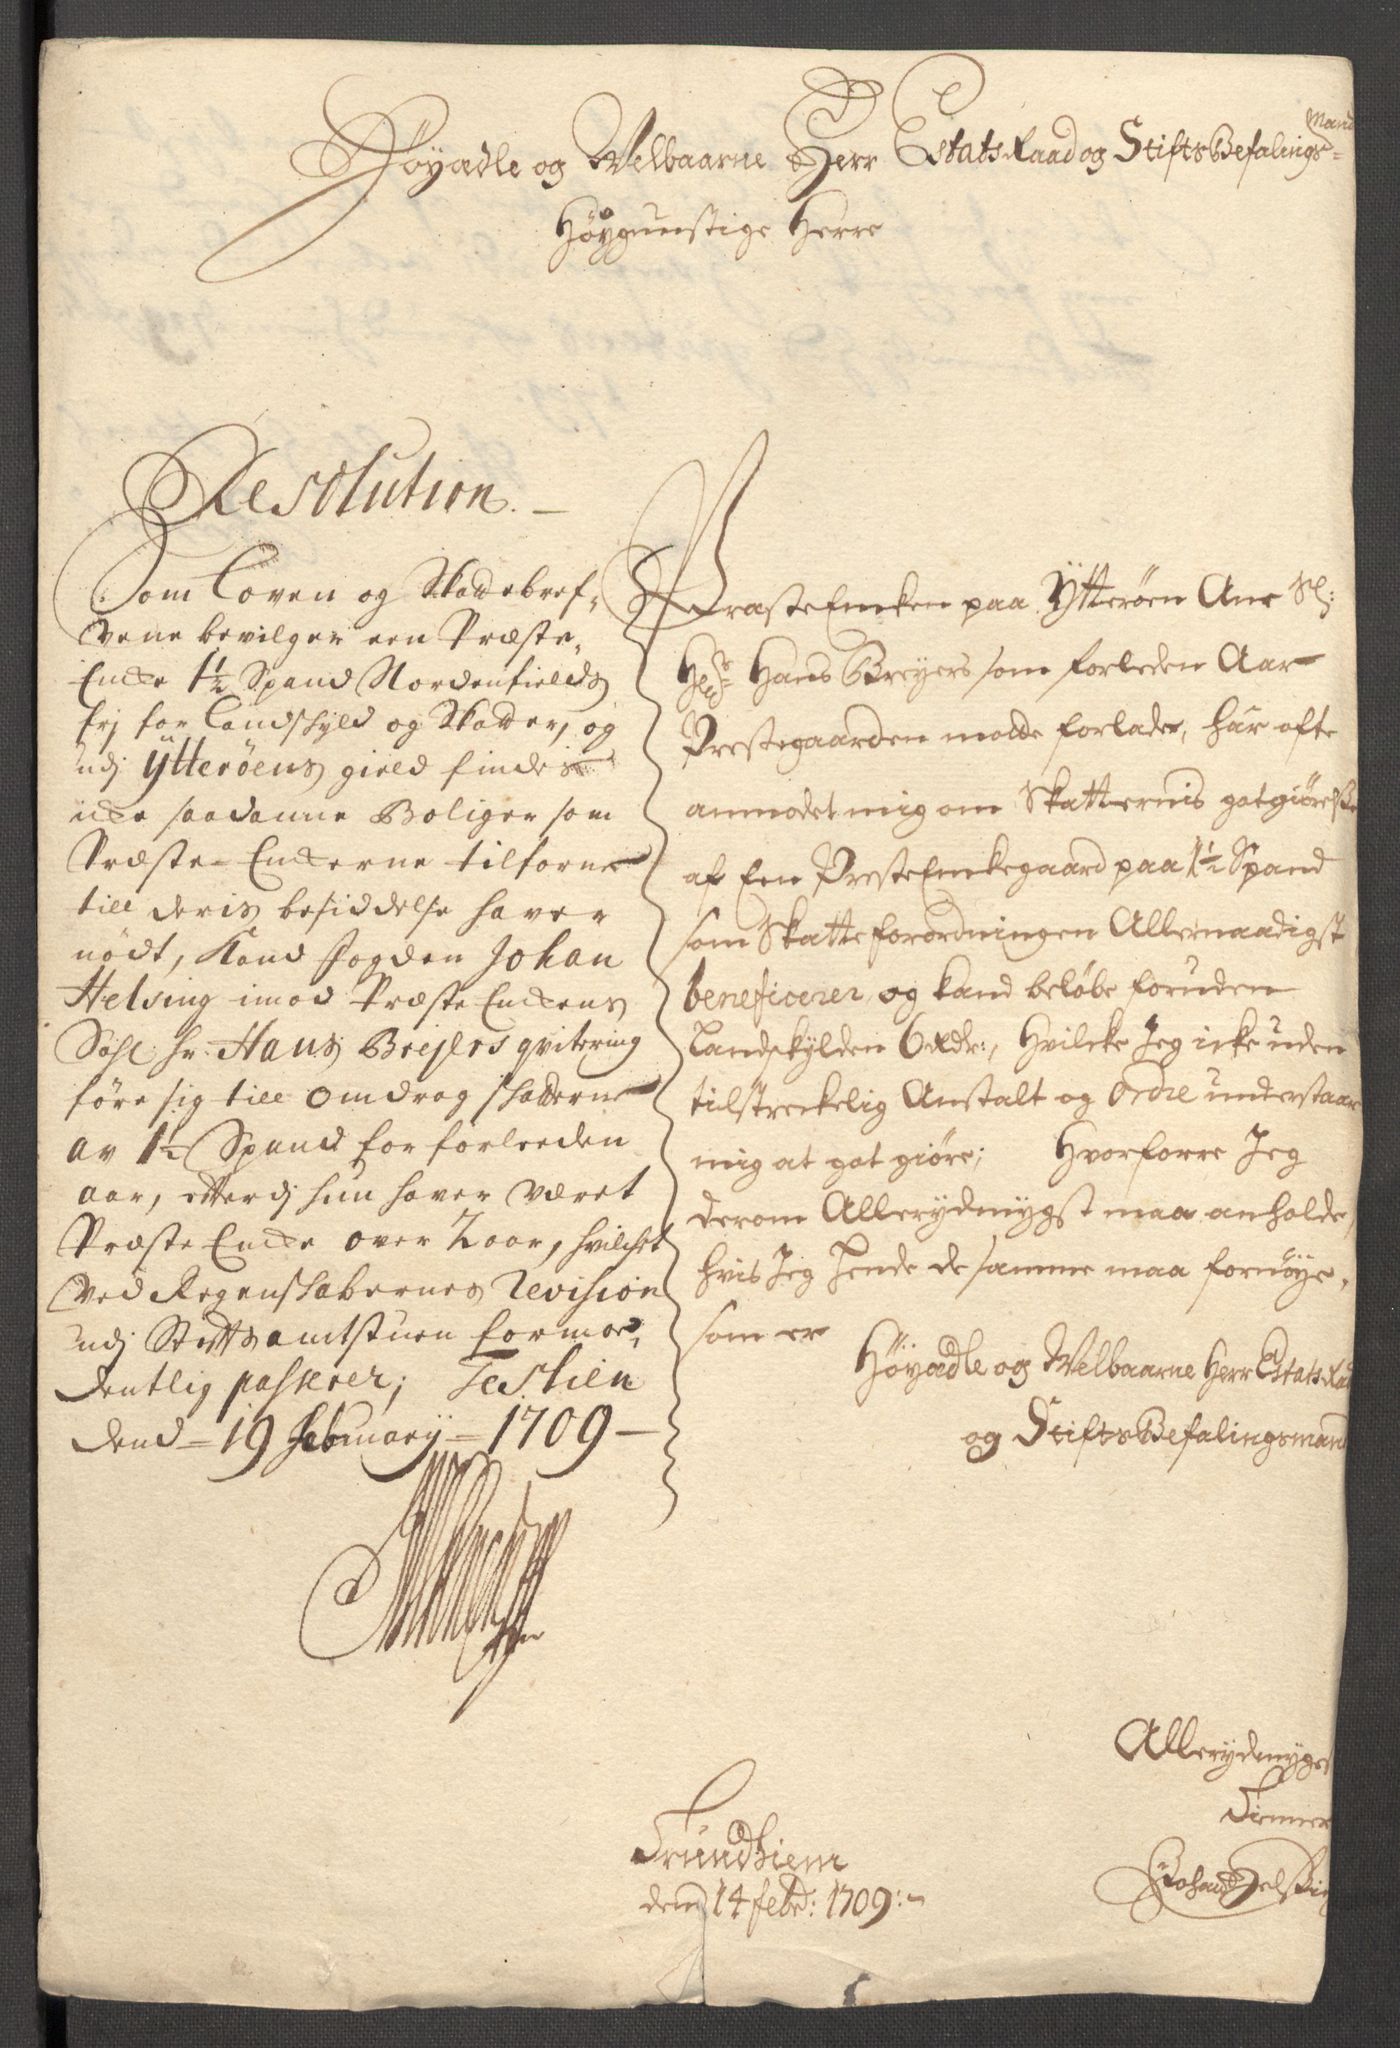 Höyædle og Welbaarne Herr Etats Raad og StiftsBefalings-
Mand
Høygunstige Herre
Resolution.
Som Loven og Skattebref-
vene bevilger een Præste-
Encke 1½ Spand Nordenfields
frj for Landskyld og Skatter, og
udj Ytteröens gield findes
icke saadanne Boliger som
Præste-Enckerne tilforne
till deris besiddelse haver
nødt, Kand fogden Johan
Helsing imod Præste Enckens
Sahl hr. Hans Breyers qvitering
føre sig till omdrag skatterne
av 1½ Spand for forleeden
aar, efterdj hun haver været
Præste Encke over 2 aar, hvilchet
ved Regenskabernes Revision
udj Stiftsamtstuen formo-
dentlig passerer; Testien
dend 19 February 1709
PræsteEncken paa Ytterøen Ane Sl:
Hr Hans Breyers som forleden Aar
Prestegaarden motte forlade, har ofte
anmodet mig om Skatternis godgiørelse
af Een PresteEnckegaard paa 1½ Spand
som Skatte forordningen Allernaadigst
beneficerer og kand beløbe foruden
Landskylden 6 Rdr:, Hvilcke Jeg icke uden
tilstreckelig Anstalt og Ordre understaar
mig at got giøre; Hvorforre Jeg
derom Allerydmygst maa anholde,
hvis Jeg hende de samme maa fornøye,
som er
Höyædle og Welbaarne Herr Etats Raad
og StiftsBefalingsmand
Allerydmygst
Tienner
Johan Helsing
Trundhiem
den 14 febr: 1709: